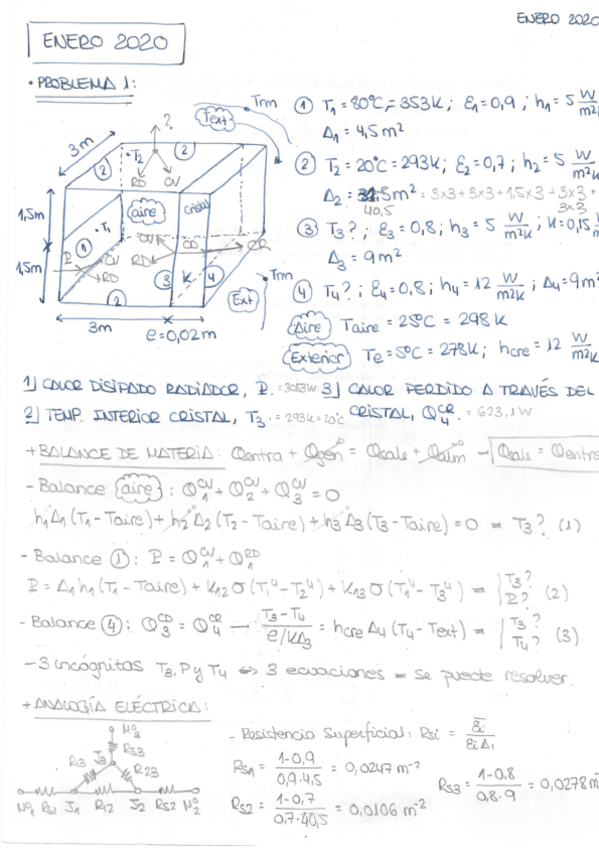 ENERO 2020
ENERO 2020
• PROBLEMA 1:
Trm
Text
?
3m
2
T2
2
RD CV
1,5m
aire
cristal
1
T1
CV
CD
CR
P
CV
RD
RD
3
K
4
1,5m
2
Trm
Ext
3m
e=0,02m
① T1 = 80°C = 353K ; ε1 = 0,9 ; h1 = 5 W/m²K
A1 = 4,5 m²
② T2 = 20°C = 293K ; ε2 = 0,7 ; h2 = 5 W/m²K
A2 = 31,5m² = 3x3 + 3x3 + 1,5x3 + 3x3 +
40,5 3x3
③ T3? ; ε3 = 0,8 ; h3 = 5 W/m²K ; K = 0,15 W/m
A3 = 9m²
④ T4? ; ε4 = 0,8 ; h4 = 12 W/m²K ; A4 = 9m²
Aire Taire = 25°C = 298K
Exterior Te = 5°C = 278K ; hcre = 12 W/m²K
1] CALOR DISIPADO RADIADOR, P. = 3053W 3] CALOR PERDIDO A TRAVÉS DEL
2] TEMP. INTERIOR CRISTAL, T3. = 293K = 20°C CRISTAL, Q4^CR. = 623,1W
+ BALANCE DE MATERIA: Qentra + Qgen = Qsale + Qalm → Qsale = Qentra
- Balance aire : Q1^CV + Q2^CV + Q3^CV = 0
h1A1(T1 - Taire) + h2A2(T2 - Taire) + h3A3(T3 - Taire) = 0 = T3? (1)
- Balance ① : P = Q1^CV + Q1^RD
P = A1h1(T1 - Taire) + K12σ(T1⁴ - T2⁴) + K13σ(T1⁴ - T3⁴) = { T3? P? (2)
- Balance ④ : Q3^CD = Q4^CR → (T3 - T4)/(e/KA3) = hcre A4 (T4 - Text) = { T3? T4? (3)
- 3 incógnitas T3, P y T4 ⇔ 3 ecuaciones = se puede resolver.
+ ANALOGÍA ELÉCTRICA:
- Resistencia Superficial: Rsi = ρ̅i/εiAi
RS3
J3
R13 R23
RS1 J1 R12 J2 RS2
RS1 = (1-0,9)/(0,9·4,5) = 0,0247 m⁻²
RS3 = (1-0,8)/(0,8·9) = 0,0278 m
RS2 = (1-0,7)/(0,7·40,5) = 0,0106 m⁻²